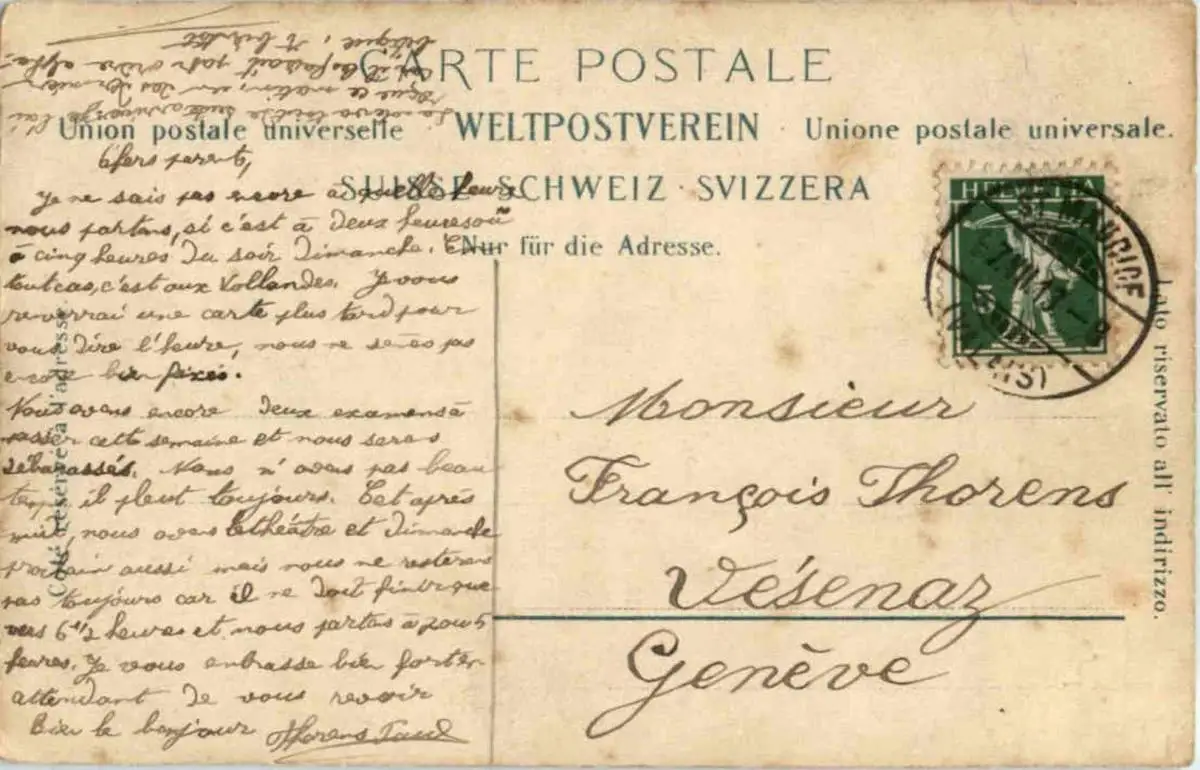 CARTE POSTALE
Union postale universelle · WELTPOSTVEREIN · Unione postale universale.
SUISSE · SCHWEIZ · SVIZZERA
Nur für die Adresse.
Côté réservé à l'adresse.
Lato riservato all' indirizzo.
HELVETIA
5
ST MAURICE
(VALAIS)
Chers parents,
Je ne sais pas encore à quelle heure
nous partons, si c'est à deux heures où
à cinq heures du soir Dimanche. En
tout cas, c'est aux Vollandes. Je vous
reverrai une carte plus tard pour
vous dire l'heure, nous ne serons pas
encore bien fixés.
Nous avons encore deux examens à
passer cette semaine et nous serons
débarassés. Nous n'avons pas beau
temps il pleut toujours. Cet après
midi, nous avons le théâtre et dimanche
prochain aussi mais nous ne resterons
pas toujours car il ne doit finir que
vers 6 1/2 heures et nous partons à
heures. Je vous embrasse bien fort en
attendant de vous revoir
Bien le bonjour Thorens Paul
ce matin, un des
il ne faisait pas
Monsieur
François Thorens
Vésenaz
Genève